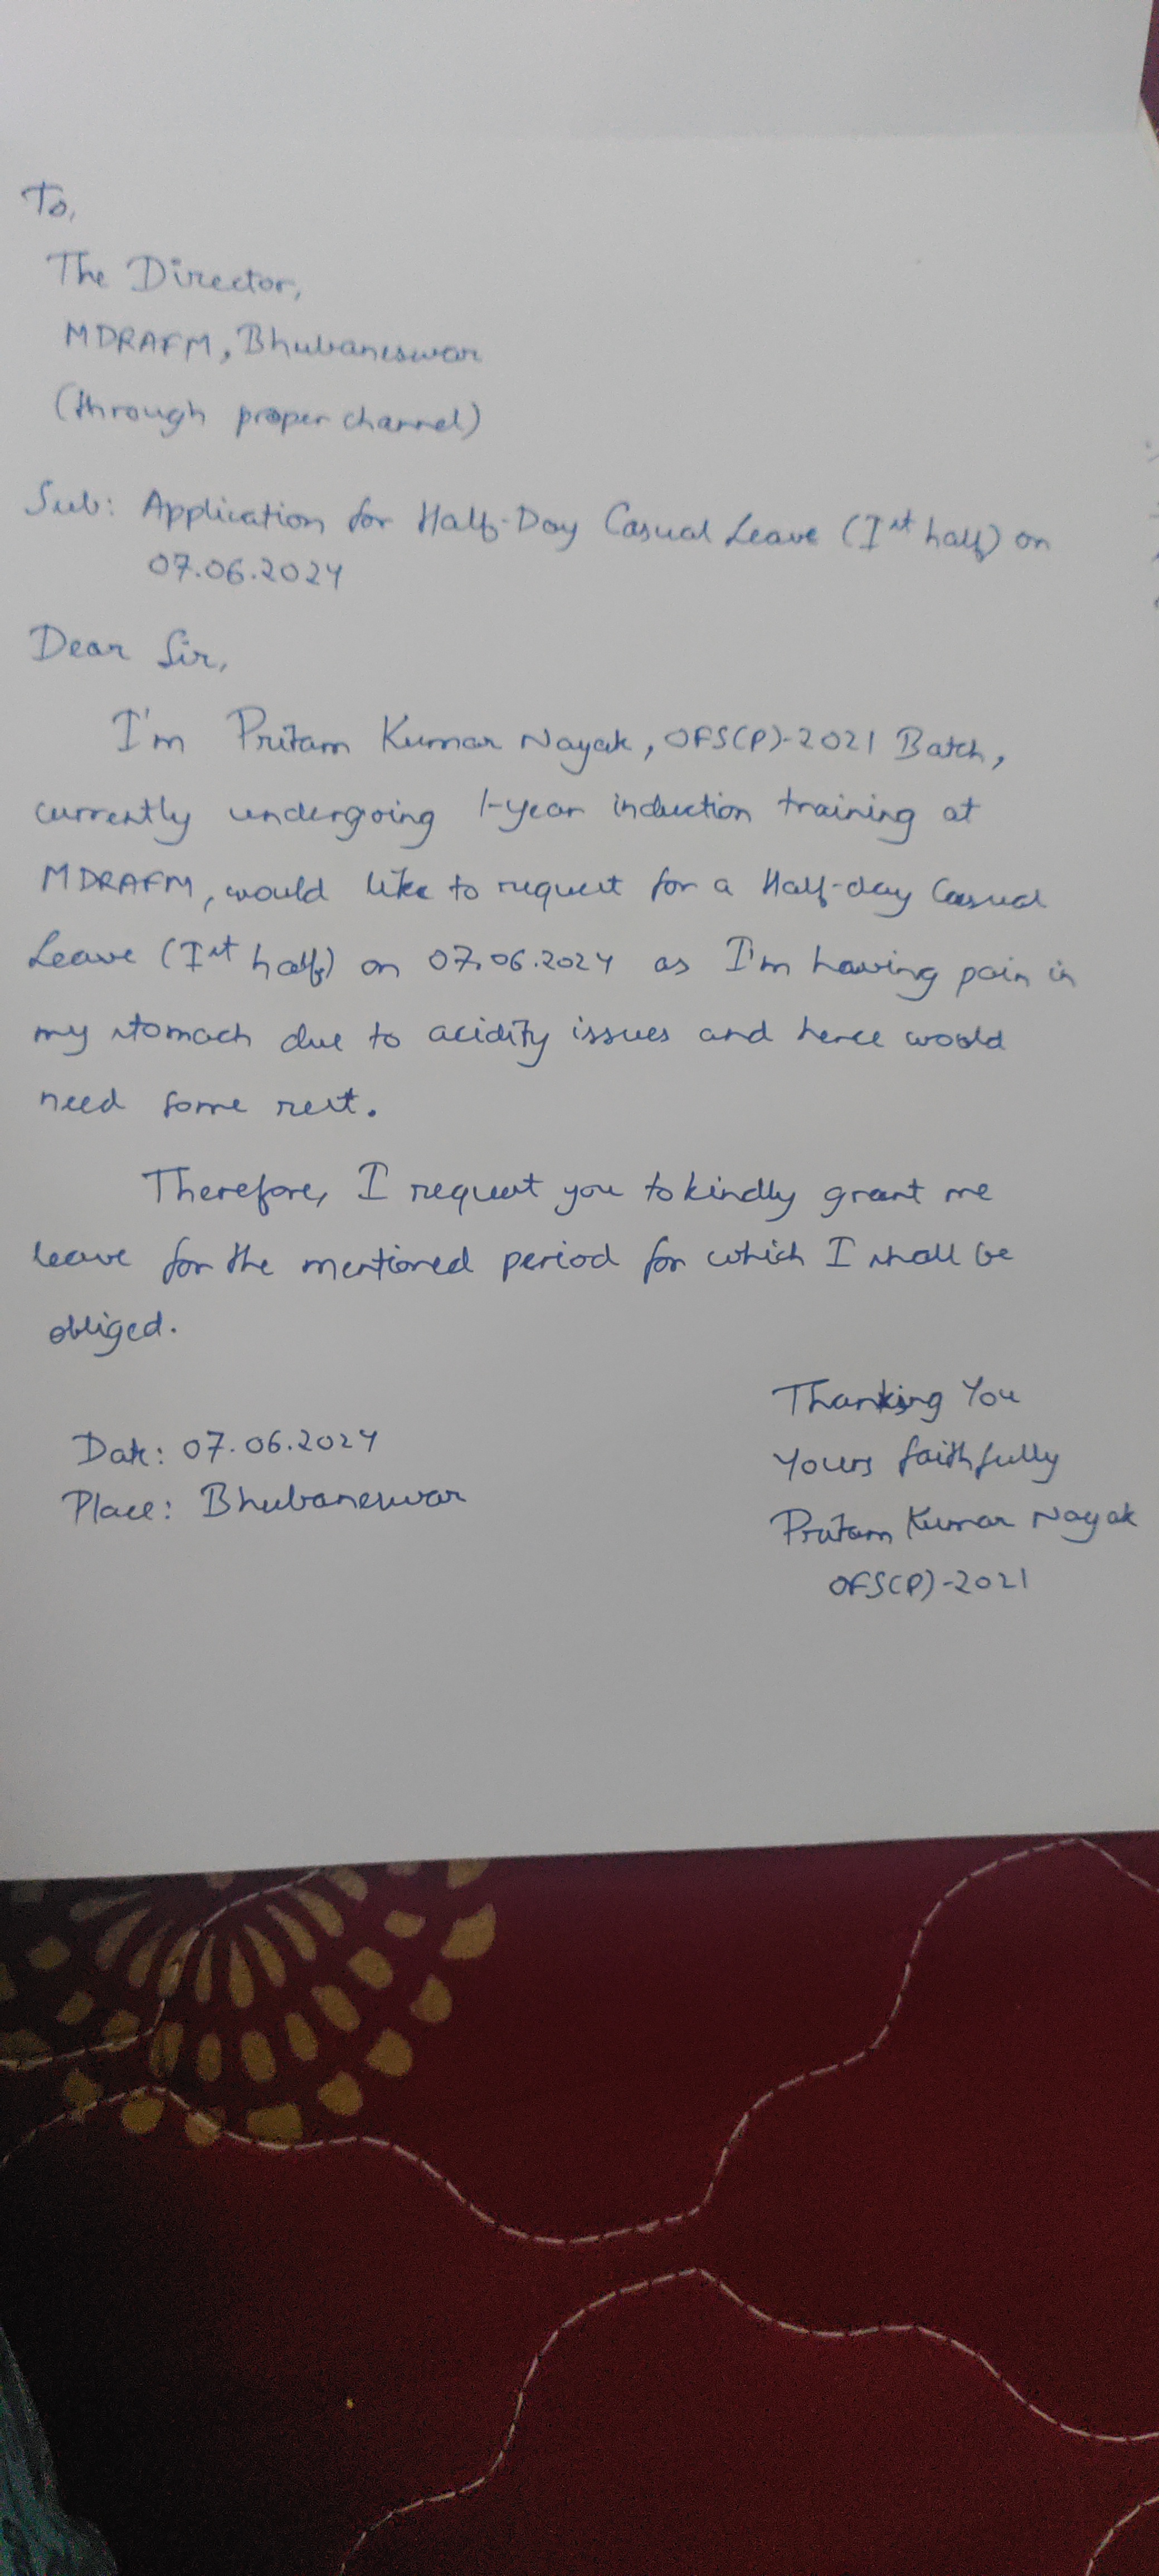 To,
The Director,
MDRAFM, Bhubaneswar
(through proper channel)
Sub: Application for Half-Day Casual Leave (Ist half) on
07.06.2024
Dear Sir,
I'm Pritam Kumar Nayak, OFS(P)-2021 Batch,
currently undergoing 1-year induction training at
MDRAFM, would like to request for a Half-day Casual
Leave (Ist half) on 07.06.2024 as I'm having pain in
my stomach due to acidity issues and hence would
need some rest.
Therefore, I request you to kindly grant me
leave for the mentioned period for which I shall be
obliged.
Thanking You
Yours faithfully
Pritam Kumar Nayak
OFS(P)-2021
Date: 07.06.2024
Place: Bhubaneswar